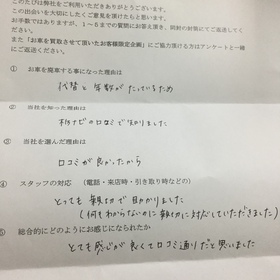 このたびは弊社をご利用いただきありがとうございます。
この出会いを大切にしたくご意見を頂けたらと思います。
お手数ではありますが、1～5までの質問にお答え頂き、同封の封筒にてご返送く
ださい。
また「お車を買取させて頂いたお客様限定企画」にご協力頂ける方はアンケートと一緒
にご返送ください。
① お車を廃車する事になった理由は
代替と年数がたっているため
② 当社を知った理由は
の口コミで知りました
③ 当社を選んだ理由は
口コミが良かったから
④ スタッフの対応 (電話・来店時・引き取り時などの)
とっても親切で助かりました
(何もわからないのに親切に対応していただきました)
⑤ 総合的にどのようにお感じになられたか
とても感じが良くて口コミ通りだと思いました